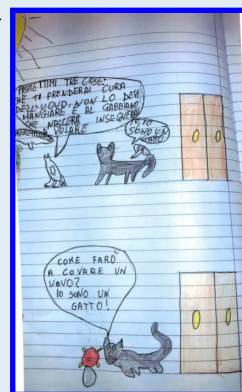 PROMETTIMI TRE COSE:
CHE TI PRENDERAI CURA
DELL'UOVO, NON LO DEVI
MANGIARE E AL GABBIANO
CHE NASCERÀ INSEGNERAI
VOLARE
IO
SONO UN
GATTO
COME FARÒ
A COVARE UN
UOVO?
IO SONO UN
GATTO!